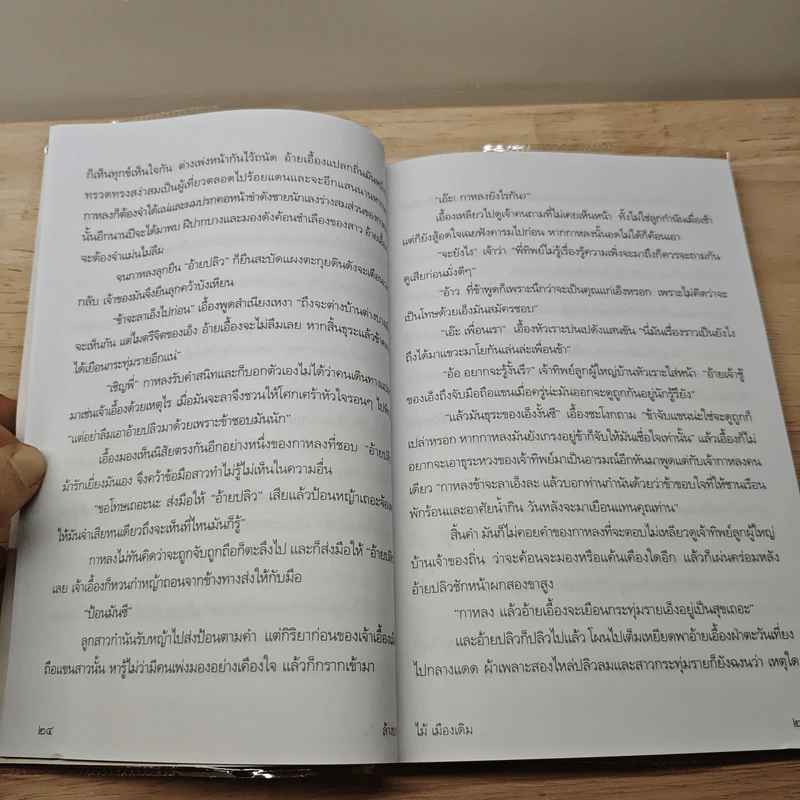 ก็เห็นทุกข์เห็นใจกัน ต่างเพ่งหน้ากันไว้ถนัด อ้ายเอื้องแปลกถิ่นมัน
ทรวดทรงสง่าสมเป็นผู้เที่ยวตลอดไปร้อยแดนและจะอีกแสนนาน
กาหลงก็ต้องจำได้แน่และผมปรกคอหน้าขำดังชายนักเลงร่างสมส่วนของ
นั้นอีกนานปีจะได้มาพบ ฝีปากบางและมองดังค้อนขำเลืองของสาว
จะต้องจำแม่นไม่ลืม
จนกาหลงลุกยืน "อ้ายปลิว" ก็ยืนสะบัดแผงตะกุยดินดังจะเตือน
กลับ เจ้าของมันจึงยืนลุกคว้าบังเหียน
"ข้าจะลาเอ็งไปก่อน" เอื้องพูดสำเนียงเหงา "ถึงจะต่างบ้านต่าง
จะเห็นกัน แต่ไมตรีจิตของเอ็ง อ้ายเอื้องจะไม่ลืมเลย หากสิ้นธุระแล้วข้า
ได้เยือนกระทุ่มรายอีกแน่"
"เชิญพี่" กาหลงรับคำสนิทและก็บอกตัวเองไม่ได้ว่าคนเดินทาง
มาเช่นเจ้าเอื้องด้วยเหตุไร เมื่อมันจะลาจึงชวนให้โศกเศร้าหัวใจรอนๆ
"แต่อย่าลืมเอาอ้ายปลิวมาด้วยเพราะข้าชอบมันนัก"
เอื้องมองเห็นนิสัยตรงกันอีกอย่างหนึ่งของกาหลงที่ชอบ "อ้ายปลิว"
ม้ารักเยี่ยงมันเอง จึงคว้าข้อมือสาวทำไม่รู้ไม่เห็นในความอื่น
"ขอโทษเถอะนะ ส่งมือให้ "อ้ายปลิว" เสียแล้วป้อนหญ้าเถอะ
ให้มันจำเสียหนเดียวถึงจะเห็นที่ไหนมันก็รู้"
กาหลงไม่ทันคิดว่าจะถูกจับถูกถือก็ตะลึงไป และก็ส่งมือให้ "อ้ายปลิว"
เลย เจ้าเอื้องก็หวนกำหญ้าถอนจากข้างทางส่งให้กับมือ
"ป้อนมันซี"
ลูกสาวกำนันรับหญ้าไปส่งป้อนตามคำ แต่กิริยาก่อนของเจ้าเอื้อง
ถือแขนสาวนั้น หารู้ไม่ว่ามีคนเพ่งมองอย่างเคืองใจ แล้วก็กรากเข้ามา
๒๔
"เอ๊ะ! กาหลงยังไรกัน?"
เอื้องเหลียวไปดูเจ้าคนถามที่ไม่เคยเห็นหน้า ทั้งไม่ใช่ลูกกำนันเมื่อเช้า
แต่ก็ยังสู้อดใจเฉยฟังคารมไปก่อน หากกาหลงนั้นอดไม่ได้ก็ค้อนเอา
"จะยังไง" เจ้าว่า "พี่ทิพย์ไม่รู้เรื่องรู้ความเพิ่งจะมาถึงก็ควรจะถามกัน
ดูเสียก่อนมั่งดีๆ"
"อ้าว ที่ข้าพูดก็เพราะนึกว่าจะเป็นคุณแก่เอ็งหรอก เพราะไม่คิดว่าจะ
เป็นโทษด้วยเอ็งมันสมัครชอบ"
"เอ๊ะ เพื่อนเรา" เอื้องหัวเราะปนเปดังแสนขัน "นี่มันเรื่องราวเป็นยังไง
ถึงได้มาแขวะมาโยกันเล่นล่ะเพื่อนข้า"
"อ้อ อยากจะรู้งั้นรึ?" เจ้าทิพย์ลูกผู้ใหญ่บ้านหัวเราะใส่หน้า "อ้ายเจ้าชู้
ของเอ็งถึงจับมือถือแขนเมื่อครู่น่ะมันออกจะดูถูกกันอยู่นักรู้รึยัง"
"แล้วมันธุระของเอ็งงั้นซี" เอื้องชะโงกถาม "ข้าจับแขนน่ะใช่จะดูถูกก็
เปล่าหรอก หากกาหลงมันยังเกรงอยู่ข้าก็จับให้มันเชื่อใจเท่านั้น" แล้วเอื้องก็ไม่
อยากจะเอาธุระหวงของเจ้าทิพย์มาเป็นอารมณ์อีกหันมาพูดแต่กับเจ้ากาหลงคน
เดียว "กาหลงข้าจะลาเอ็งละ แล้วบอกท่านกำนันด้วยว่าข้าขอบใจที่ให้ชานเรือน
พักร้อนและอาศัยน้ำกิน วันหลังจะมาเยือนแทนคุณท่าน"
สิ้นคำ มันก็ไม่คอยคำของกาหลงที่จะตอบไม่เหลียวดูเจ้าทิพย์ลูกผู้ใหญ่
บ้านเจ้าของถิ่น ว่าจะค้อนจะมองหรือแค้นเคืองใดอีก แล้วก็เผ่นคร่อมหลัง
อ้ายปลิวชักหน้าผกสองขาสูง
"กาหลง แล้วอ้ายเอื้องจะเยือนกระทุ่มรายเอ็งอยู่เป็นสุขเถอะ"
และอ้ายปลิวก็ปลิวไปแล้ว โผนไปเต็มเหยียดพาอ้ายเอื้องฝ่าตะวันเที่ยง
ไปกลางแดด ผ้าเพลาะสองไหล่ปลิวลมและสาวกระทุ่มรายก็ยังฉงนว่า เหตุใด
ไม้ เมืองเดิม